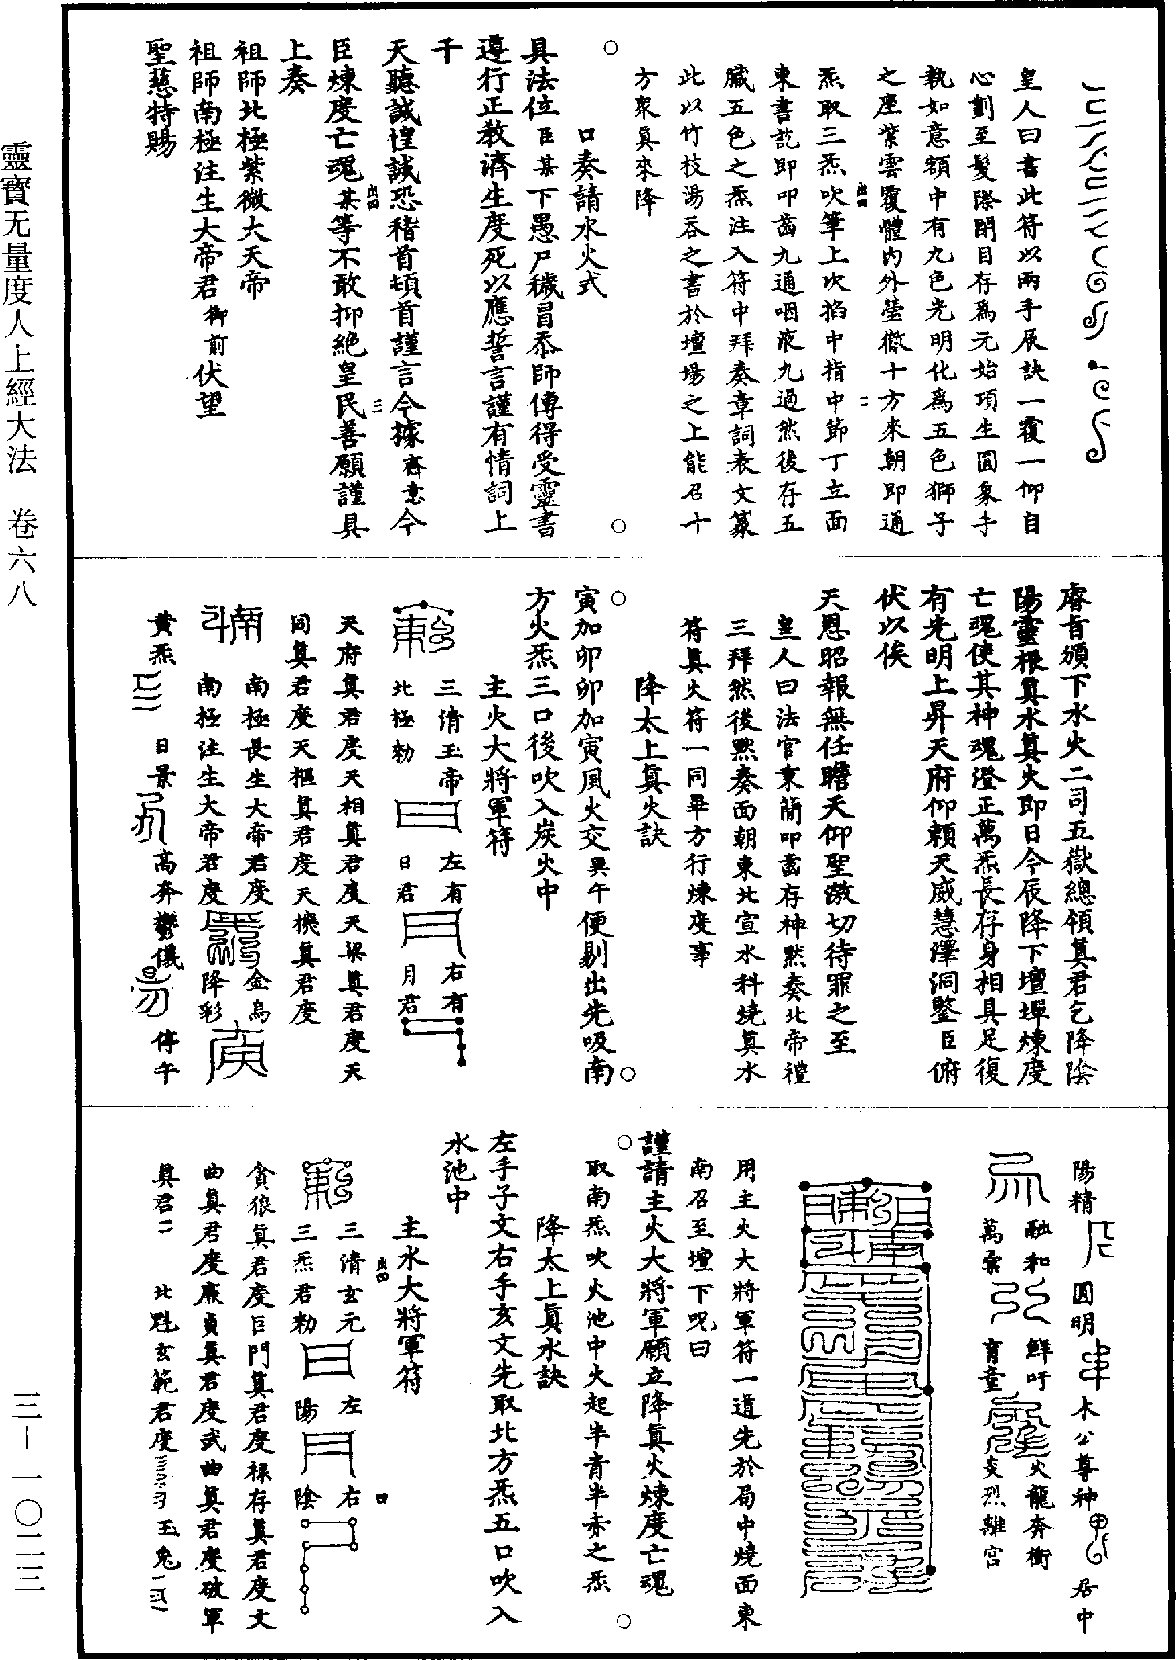 皇人曰書此符以兩手辰訣一覆一仰自
心劃至髮際閉目存爲元始項生圓象手
執如意額中有九色光明化爲五色獅子
之座紫雲覆體內外瑩徹十方來朝即通
炁取三炁吹筆上次掐中指中節丁立面
東書訖即叩齒九通咽液九過然後存五
臟五色之炁注入符中拜奏章詞表文篆
此以竹枝湯吞之書於壇場之上能召十
方衆眞來降
口奏請水火式
具法位臣某下愚尸穢冒忝師傳得受靈書
遵行正教濟生度死以應誓言謹有情詞上
千
天聽誠惶誠恐稽首頓首謹言今據齋意今
臣煉度亡魂某等不敢抑絕皇民善願謹具
上奏
祖師北極紫微大天帝
祖師南極注生大帝君御前伏望
聖慈特賜
睿旨頒下水火二司五嶽總領眞君乞降陰
陽靈根眞水眞火即日今辰降下壇墠煉度
亡魂使其神魂澄正萬炁長存身相具足復
有光明上昇天府仰賴天威慧澤洞鑒臣俯
伏以俟
天恩昭報無任瞻天仰聖激切待罪之至
皇人曰法官東簡叩齒存神默奏北帝禮
三拜然後默奏面朝東北宣水科燒眞水
符眞火符一同畢方行煉度事
降太上眞火訣
寅加卯卯加寅風火交巽午便剔出先吸南
方火炁三口後吹入炭火中
主火大將軍符
三清玉帝 左有 右有
北極勑 日君 月君
天府眞君度天相眞君度天梁眞君度天
同眞君度天樞眞君度天機眞君度
南極長生大帝君度 金烏
南極注生大帝君度 降彩
黃炁 日景 高奔鬱儀 停午
陽精 圓明 木公尊神 居中
融和 鮮呼 火龍奔衝
萬彙 育童 炎烈離宮
用主火大將軍符一道先於局中燒面東
南召至壇下呪曰
謹請主火大將軍願立降眞火煉度亡魂
取南炁吹火池中火起半青半赤之炁
降太上眞水訣
左手子文右手亥文先取北方炁五口吹入
水池中
主水大將軍符
三清玄元 左 右
三炁君勑 陽 陰
貪狼眞君度巨門眞君度祿存眞君度文
曲眞君度廉貞眞君度武曲眞君度破軍
眞君 北魁玄範君度 玉兔
靈寶无量度人上經大法 卷六八
三—一〇二三